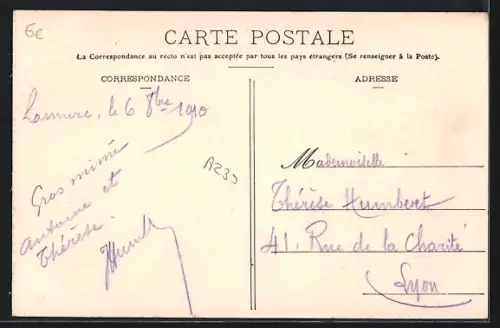 6€
CARTE POSTALE
La Correspondance au recto n'est pas acceptée par tous les pays étrangers (Se renseigner à la Poste).
CORRESPONDANCE
Lamure, le 6 8bre 1910
Gros mimi
Antoine et
Thérèse.
A233
ADRESSE
Mademoiselle
Thérèse Humbert
41, Rue de la Charité
Lyon